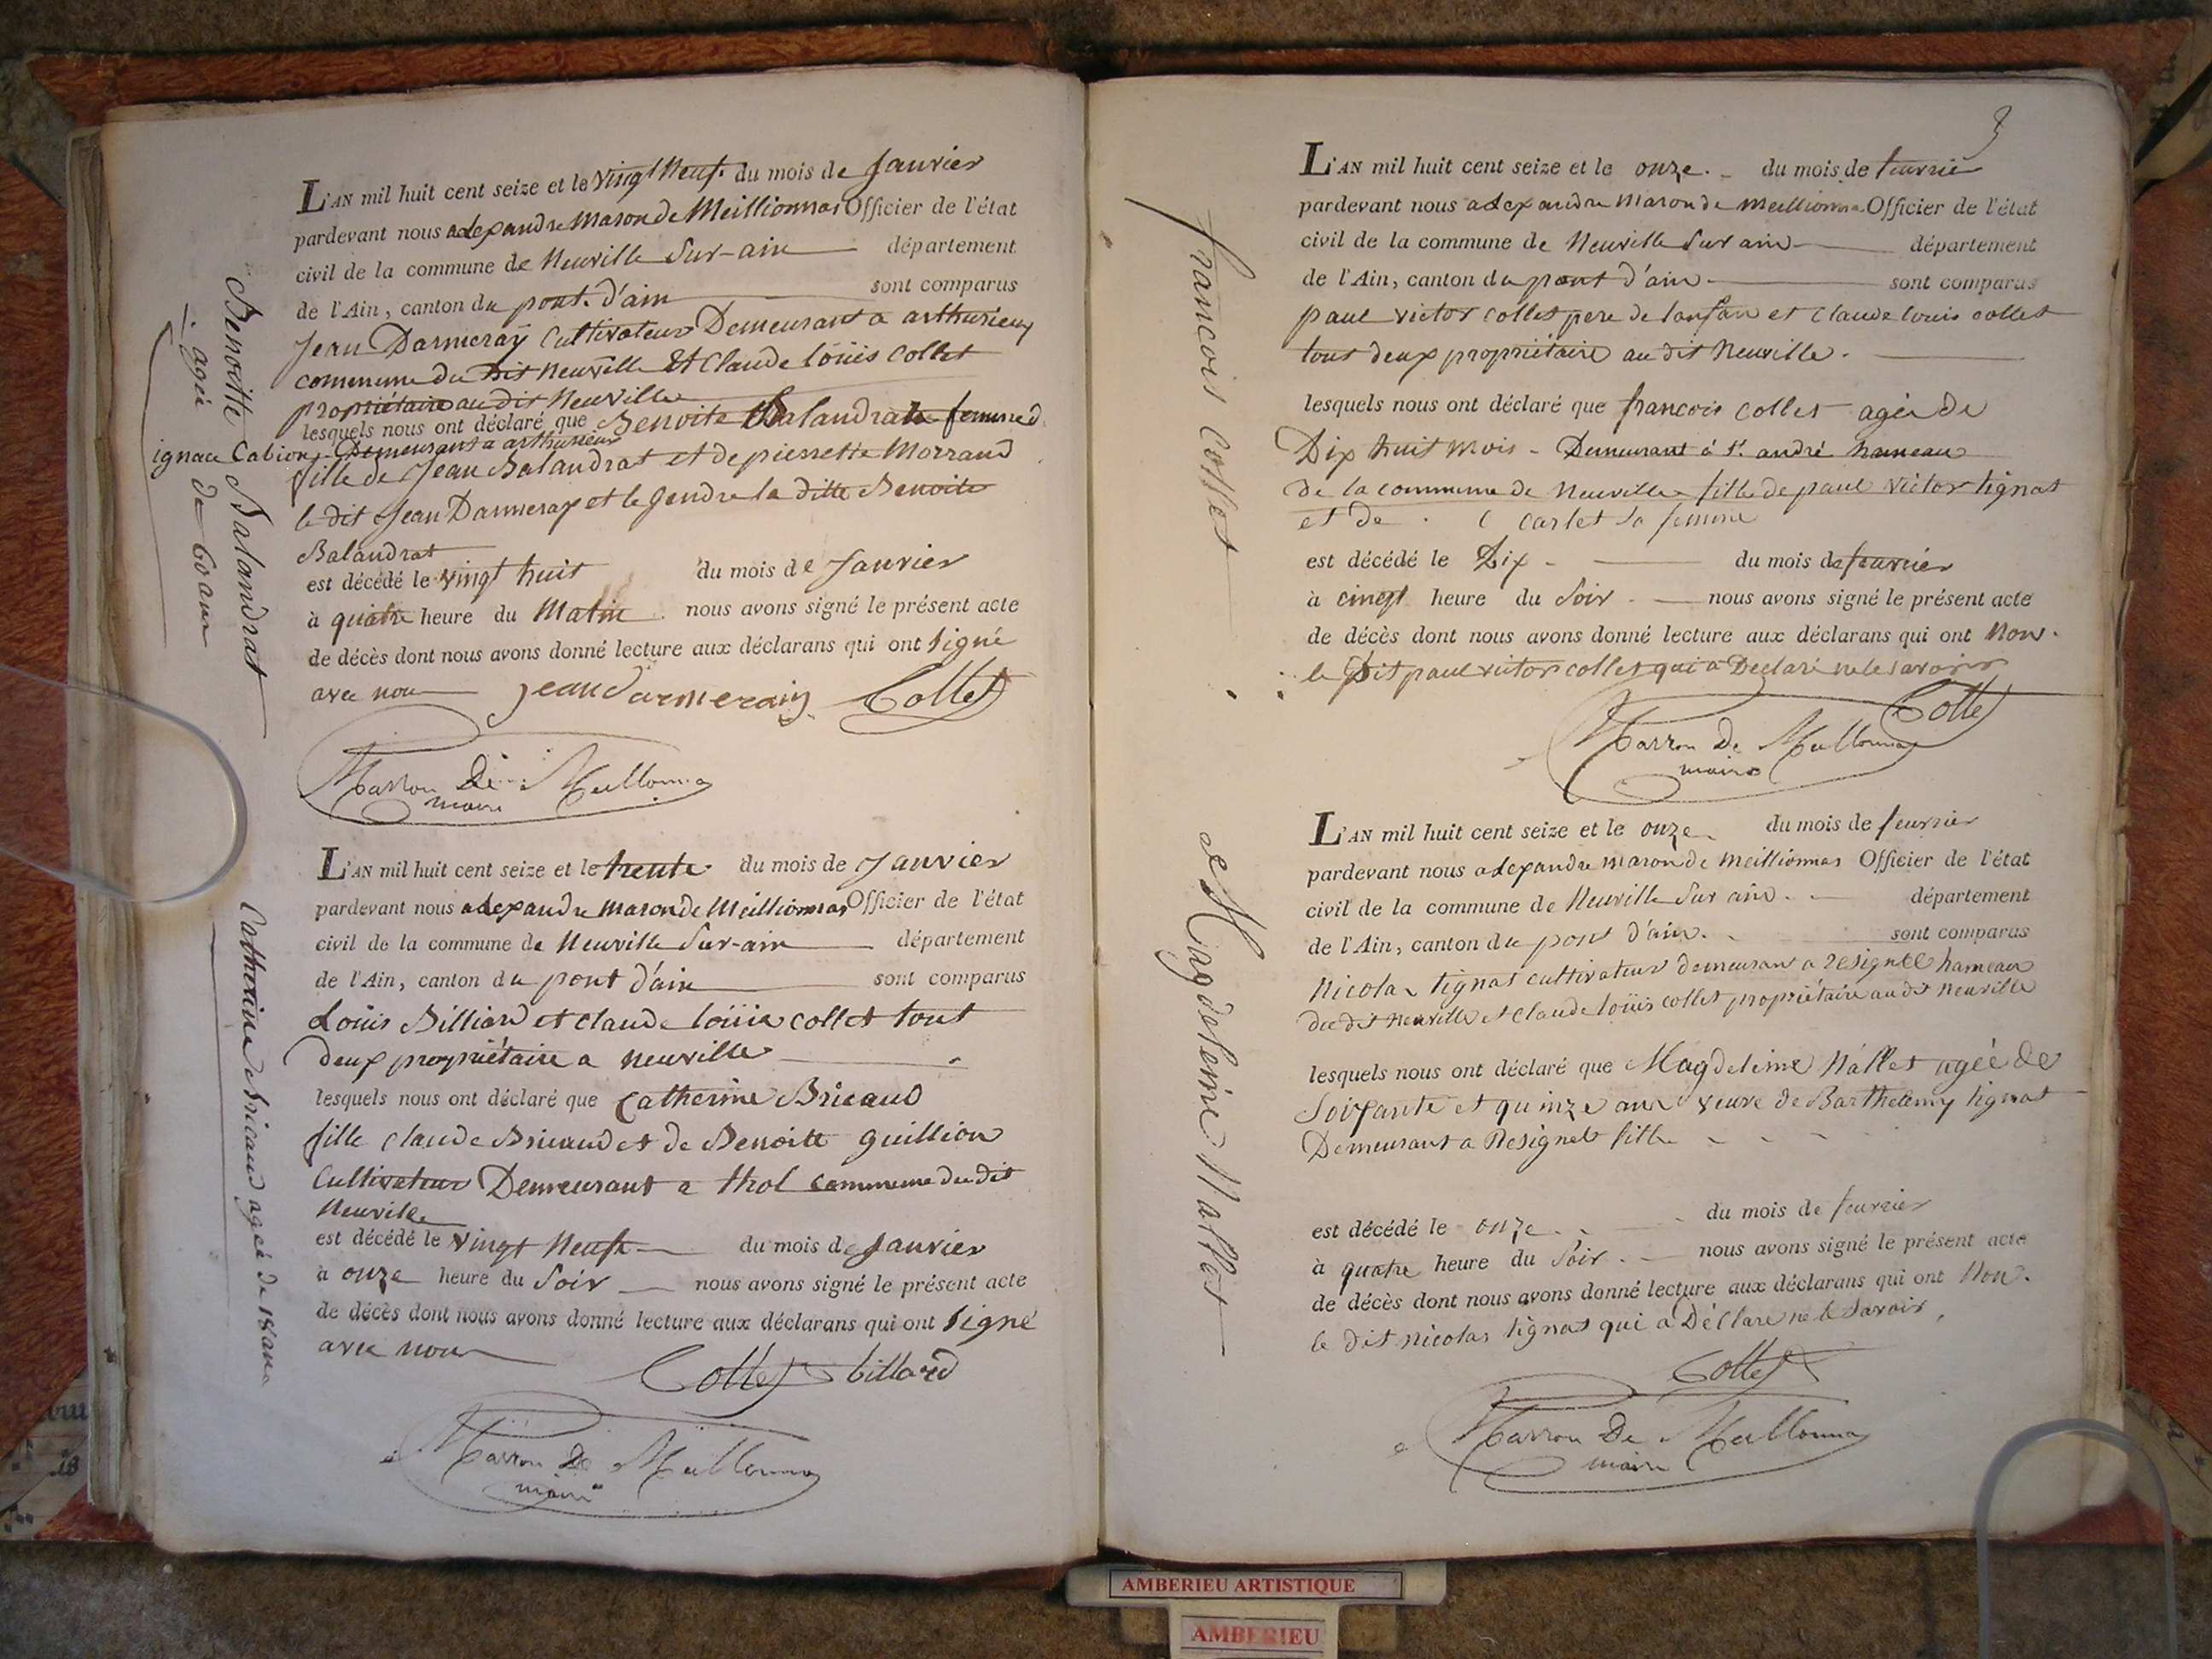 L'AN mil huit cent seize et le vingt neuf du mois de Janvier
pardevant nous alexandre maron de Meillionnas Officier de l'état
civil de la commune de Neuville Sur-ain département
de l'Ain, canton du pont d'ain sont comparus
Jean Darmeray Cultivateur Demeurant a arthurieux
commune du dit neuville Et Claude loüis Collet
propriétaire au dit Neuville
lesquels nous ont déclaré que Benoite Balandrat femme d
ignace Cabion Demeurant a arthurieux
fille de Jean Balandrat et de pierrette Morrand
le dit Jean Darmeray et le gendre la ditte Benoite
Balandrat
est décédé le vingt huit du mois de Janvier
à quatre heure du Matin nous avons signé le présent acte
de décès dont nous avons donné lecture aux déclarans qui ont Signé
avec nous jean Darmeraiy Collet
Marron De Meillonna
maire
Benoitte Balandrat
agée de 60 ans
L'AN mil huit cent seize et le trente du mois de Janvier
pardevant nous alexandre maron de Meillionnas Officier de l'état
civil de la commune de Neuville Sur-ain département
de l'Ain, canton du pont d'ain sont comparus
Loüis Billiard et claude loüis collet tout
deux propriétaire a neuville
lesquels nous ont déclaré que Catherine Bricaud
fille claude Bricaud et de Benoitte guillion
Cultivateur Demeurant a thol commune du dit
Neuville
est décédé le vingt Neuf du mois de Janvier
à onze heure du Soir nous avons signé le présent acte
de décès dont nous avons donné lecture aux déclarans qui ont Signé
avec nous Collet billard
Marron De Meillonna
maire
Catherine bricaud agée de 18 ans
3
L'AN mil huit cent seize et le onze du mois de fevrier
pardevant nous alexandre maron de meillionna Officier de l'état
civil de la commune de Neuville Sur ain département
de l'Ain, canton du pont d'ain sont comparus
paul victor collet pere de lanfan et Claude louis collet
tout deux propriétaire au dit Neuville.
lesquels nous ont déclaré que françois collet agée de
Dix huit mois - Demeurant à St. andré hameau
de la commune de neuville fille de paul victor tignat
et de C carlet sa femme
est décédé le Dix du mois de fevrier
à cinq heure du Soir nous avons signé le présent acte
de décès dont nous avons donné lecture aux déclarans qui ont Non
le Dit paul victor collet qui a Déclaré ne le savoir
Collet
Marron De Meillonna
maire
françois Collet
L'AN mil huit cent seize et le onze du mois de fevrier
pardevant nous alexandre maron de meillionnas Officier de l'état
civil de la commune de Neuville Sur ain département
de l'Ain, canton du pont d'ain sont comparus
Nicolas tignat cultivateur demeurant a resignel hameau
du dit Neuville et Claude loüis collet propriétaire au dit Neuville
lesquels nous ont déclaré que Magdeleine Nallet agée de
Soixante et quinze ans veuve de Barthelemy tignat
Demeurant a Resignel fille
est décédé le onze du mois de fevrier
à quatre heure du Soir nous avons signé le présent acte
de décès dont nous avons donné lecture aux déclarans qui ont Non
le dit nicolas tignat qui a Déclare ne le Savoir
Collet
Marron De Meillonna
maire
Magdeleine Nallet
AMBERIEU ARTISTIQUE
AMBERIEU